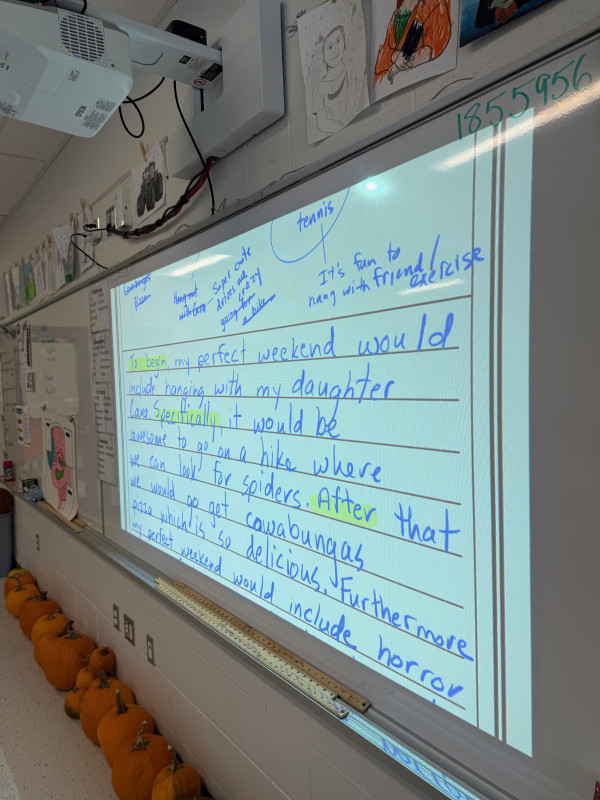 1855956
tennis
It's fun to
hang with friend/
exercise
Hangout
with Cara
Super cute
drives me
crazy
going for a
hike
Cowabungas
Pizza
To begin, my perfect weekend would
include hanging with my daughter
Cara. Specifically, it would be
awesome to go on a hike where
we can look for spiders. After that
we would go get cowabungas
pizza which is so delicious. Furthermore
my perfect weekend would include horror
EPSON